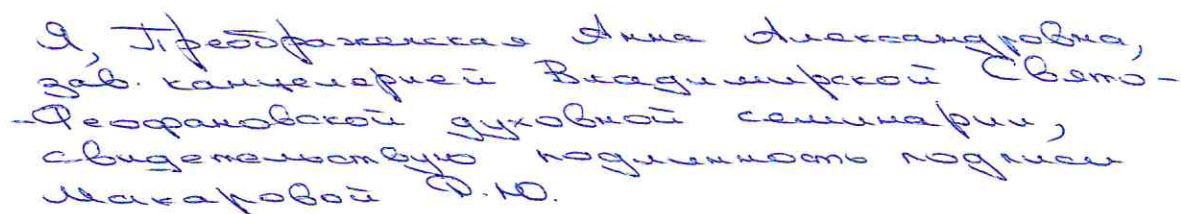 Я, Преображенская Анна Александровна,
зав. канцелярией Владимирской Свято-
-Феофановской духовной семинарии,
свидетельствую подлинность подписи
Макаровой Д.Ю.